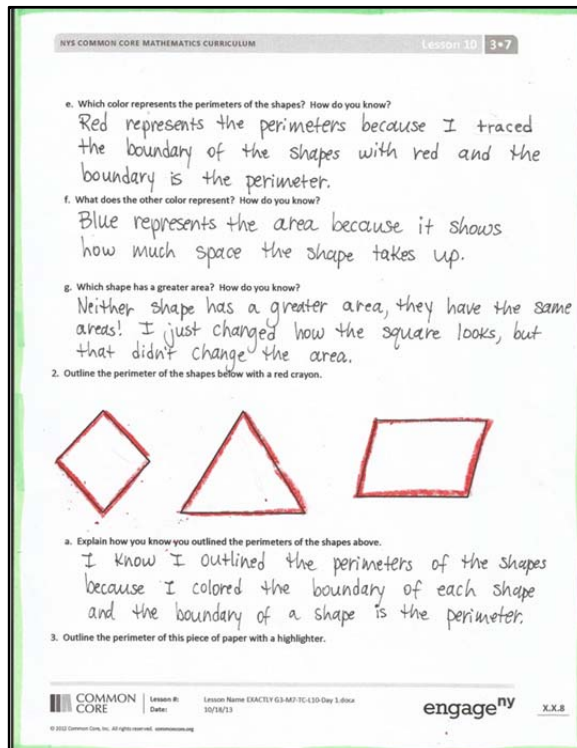 NYS COMMON CORE MATHEMATICS CURRICULUM
Lesson 10
3•7
e. Which color represents the perimeters of the shapes? How do you know?
Red represents the perimeters because I traced
the boundary of the shapes with red and the
boundary is the perimeter.
f. What does the other color represent? How do you know?
Blue represents the area because it shows
how much space the shape takes up.
g. Which shape has a greater area? How do you know?
Neither shape has a greater area, they have the same
areas! I just changed how the square looks, but
that didn't change the area.
2. Outline the perimeter of the shapes below with a red crayon.
a. Explain how you know you outlined the perimeters of the shapes above.
I know I outlined the perimeters of the shapes
because I colored the boundary of each shape
and the boundary of a shape is the perimeter.
3. Outline the perimeter of this piece of paper with a highlighter.
COMMON
CORE
Lesson #:
Date:
Lesson Name EXACTLY G3-M7-TC-L10-Day 1.docx
10/18/13
engageny
X.X.8
© 2012 Common Core, Inc. All rights reserved. commoncore.org